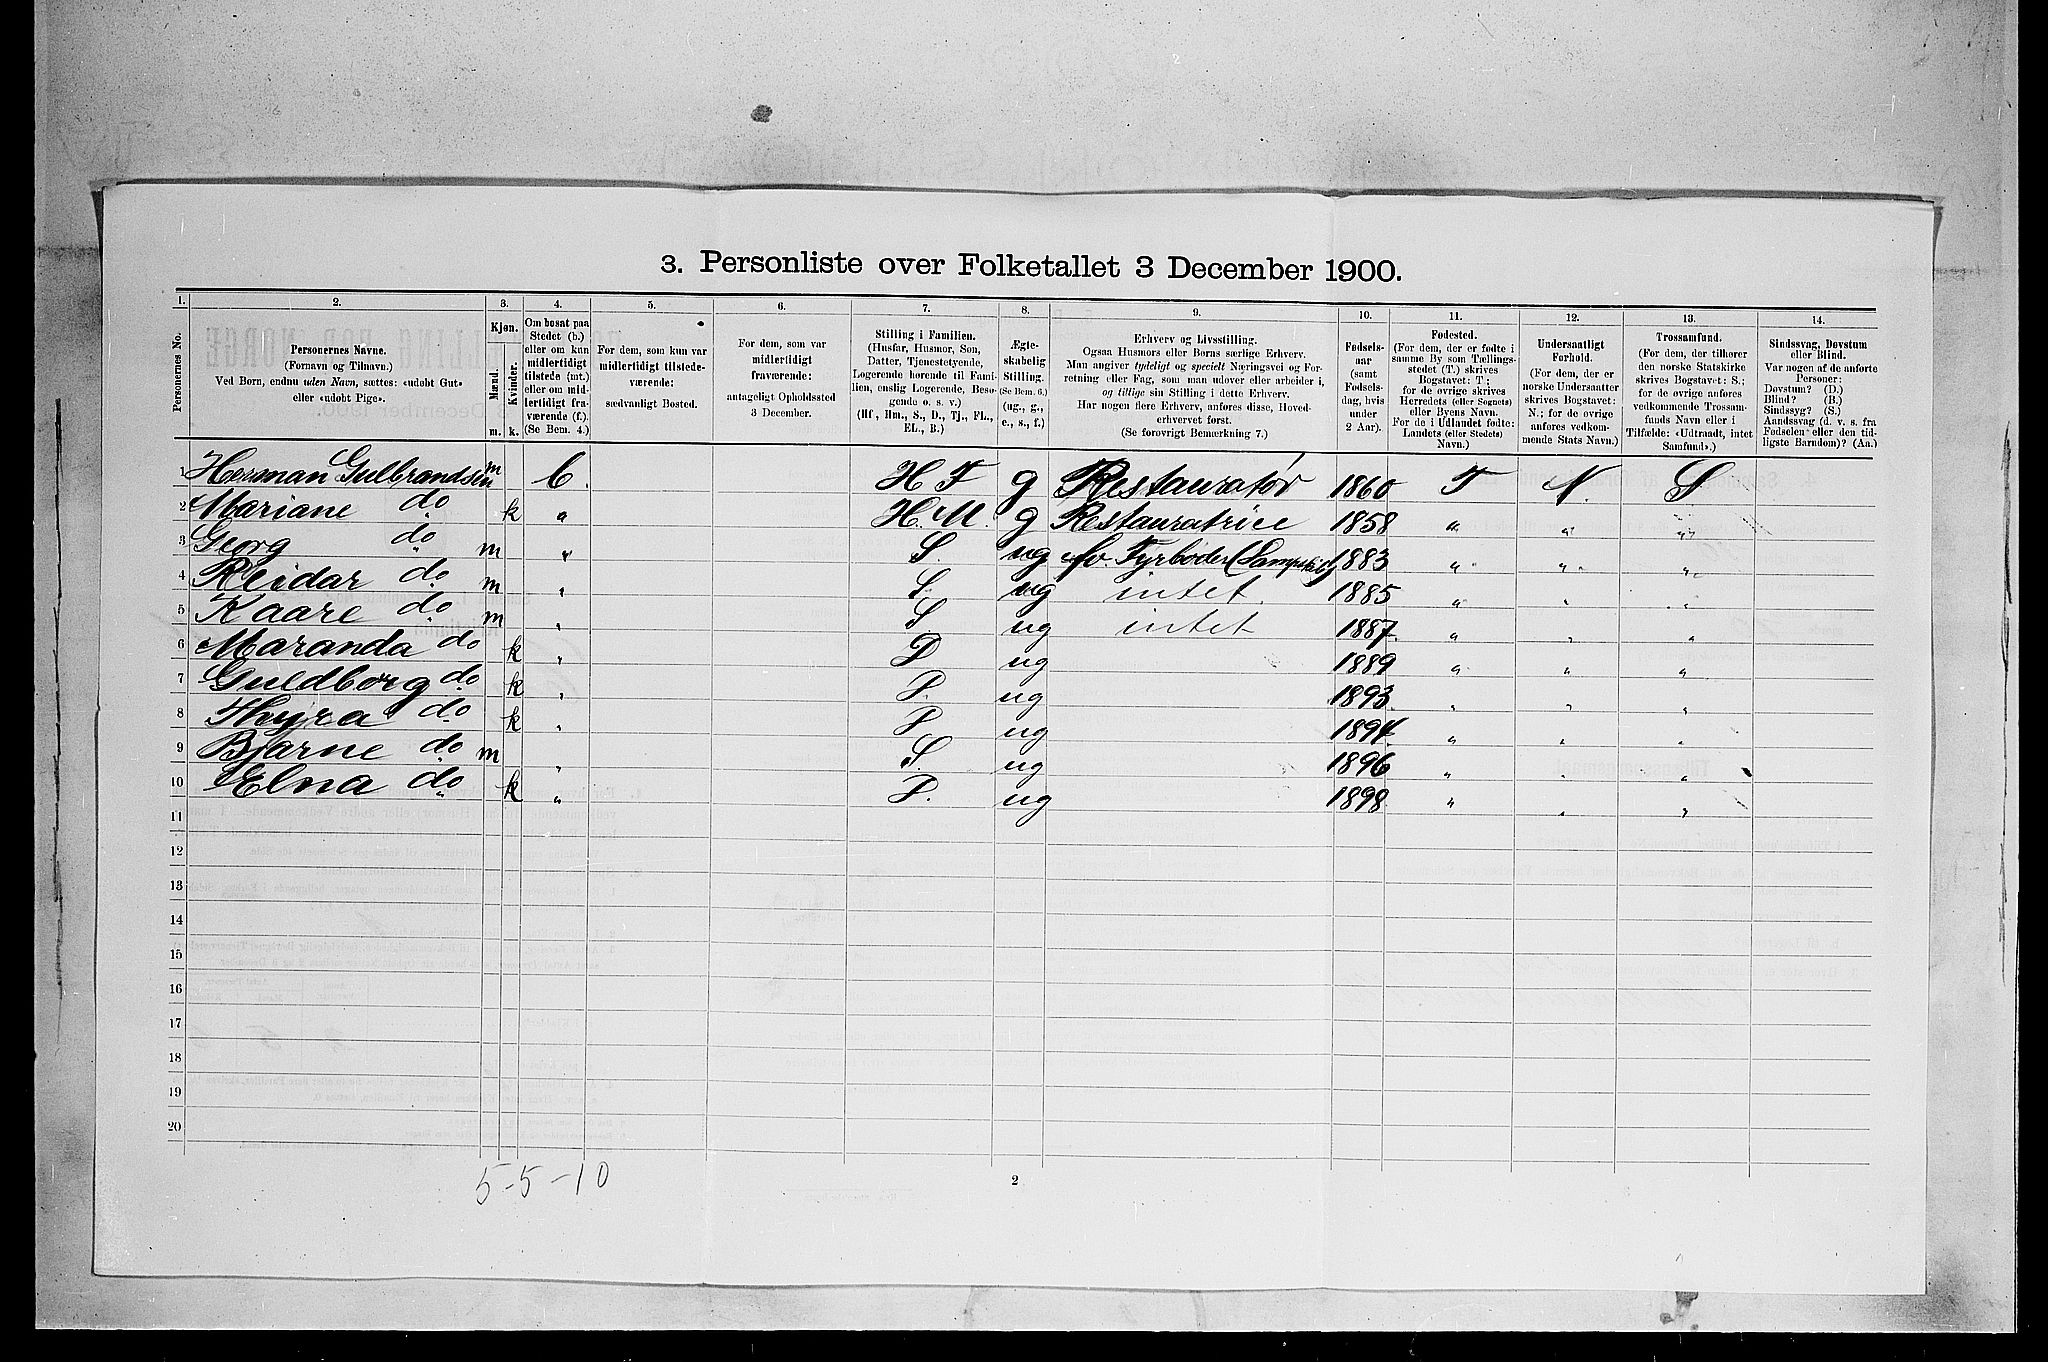 3. Personliste over Folketallet 3 December 1900.
1. 2. 3. 4. 5. 6. 7. 8. 9. 10. 11. 12. 13. 14.
Personernes No.
Personernes Navne.
(Fornavn og Tilnavn.)
Ved Børn, endnu uden Navn, sættes: «udøbt Gut»
eller «udøbt Pige».
Kjøn.
Mænd.
Kvinder.
m. k.
Om bosat paa
Stedet (b.)
eller om kun
midlertidigt
tilstede (mt.)
eller om mid-
lertidigt fra-
værende (f.).
(Se Bem. 4.)
For dem, som kun var
midlertidigt tilstede-
værende:
sædvanligt Bosted.
For dem, som var
midlertidigt
fraværende:
antageligt Opholdssted
3 December.
Stilling i Familien.
(Husfar, Husmor, Søn,
Datter, Tjenestetyende,
Logerende hørende til Fami-
lien, enslig Logerende, Besø-
gende o. s. v.)
(Hf, Hm., S., D., Tj., FL.,
EL., B.)
Ægte-
skabelig
Stilling.
(Se Bem. 6.)
(ug., g.,
e., s., f.)
Erhverv og Livsstilling.
Ogsaa Husmors eller Børns særlige Erhverv.
Man angiver tydeligt og specielt Næringsvei og For-
retning eller Fag, som man udøver eller arbeider i,
og tillige sin Stilling i dette Erhverv.
Har nogen flere Erhverv, anføres disse, Hoved-
erhvervet først.
(Se forøvrigt Bemærkning 7.)
Fødsels-
aar
(samt
Fødsels-
dag, hvis
under
2 Aar).
Fødested.
(For dem, der er fødte i
samme By som Tællings-
stedet (T.) skrives
Bogstavet: T;
for de øvrige skrives
Herredets (eller Sognets)
eller Byens Navn.
For de i Udlandet fødte:
Landets (eller Stedets)
Navn.)
Undersaatligt
Forhold.
(For dem, der er
norske Undersaatter
skrives Bogstavet:
N.; for de øvrige
anføres vedkom-
mende Stats Navn.)
Trossamfund.
(For dem, der tilhører
den norske Statskirke
skrives Bogstavet: S.;
for de øvrige anføres
vedkommende Trossam-
funds Navn eller i
Tilfælde: «Udtraadt, intet
Samfund».)
Sindssvag, Døvstum
eller Blind.
Var nogen af de anførte
Personer:
Døvstum? (D.)
Blind? (B.)
Sindssyg? (S.)
Aandssvag (d. v. s. fra
Fødselen eller den tid-
ligste Barndom)? (Aa.)
1 Herman Gulbrandsen m b. H F g Restauratør 1860 T N. S
2 Mariane do k " H. M. g Restauratrice 1858 " " "
3 Georg do m " S ug fv. Fyrbøder 1883 " " "
4 Reidar do m " S. ug intet. 1885 " " "
5 Kaare do m " S ug intet 1887. " " "
6 Maranda do k " D ug 1889 " " "
7 Guldborg do k " D. ug 1893. " " "
8 Thyra do k " D ug 1894. " " "
9 Bjarne do m " S. ug 1896 " " "
10 Elna do k " D. ug 1898. " " "
11
12
13
14
15
16
17
18
19
20
5-5-10
2